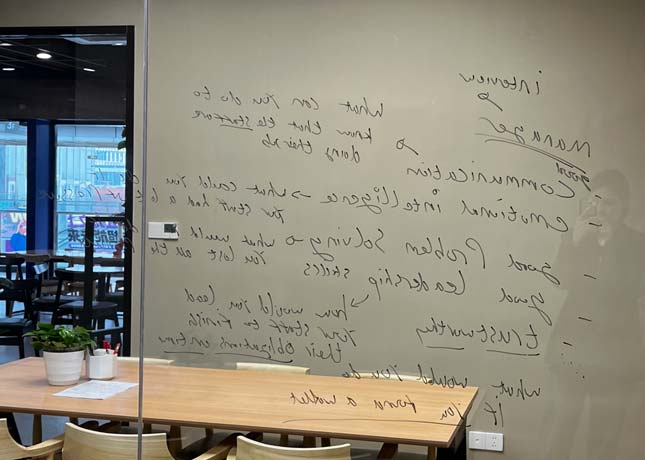 interview
Manager
- good
communication
what can you do to
know that the staff are
doing their job
- emotional intelligence → what could you
your staff had a
- good Problem Solving → what would
You lost all the
- good leadership
skills
how would you lead
your staff to finish
their obligations on time
- trustworthy
what would you do
if you found a wallet